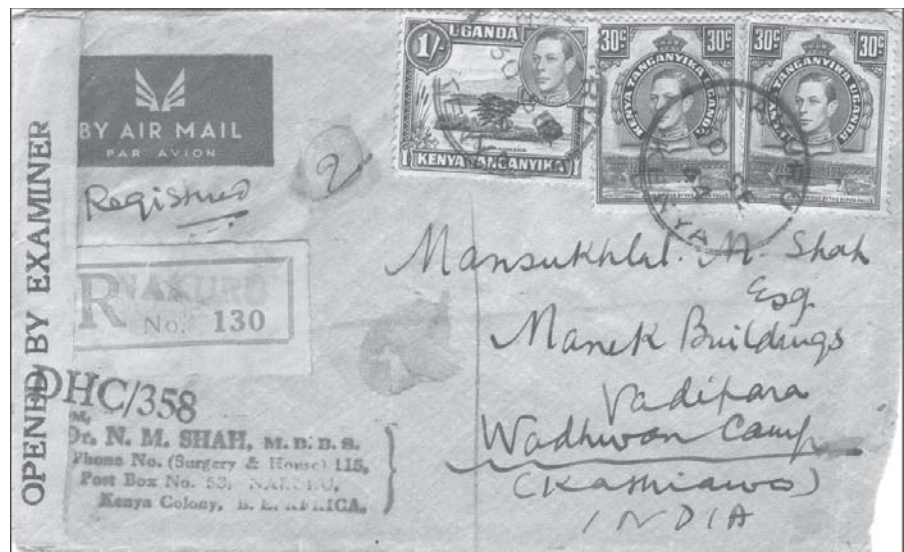 OPENED BY EXAMINER
BY AIR MAIL
PAR AVION
Registered
2
R NAKURO
No. 130
DHC/358
Dr. N. M. SHAH, M. B. B. S.
Phone No. (Surgery & House) 115,
Post Box No. 53, NAKURU,
Kenya Colony, B. E. AFRICA.
1/- UGANDA
KENYA TANGANYIKA
30c 30c
KENYA TANGANYIKA UGANDA
30c 30c
KENYA TANGANYIKA UGANDA
KENYA
Mansukhlal. M. Shah
Esq
Manek Buildings
Vadipara
Wadhwan Camp
(Kathiawar)
INDIA